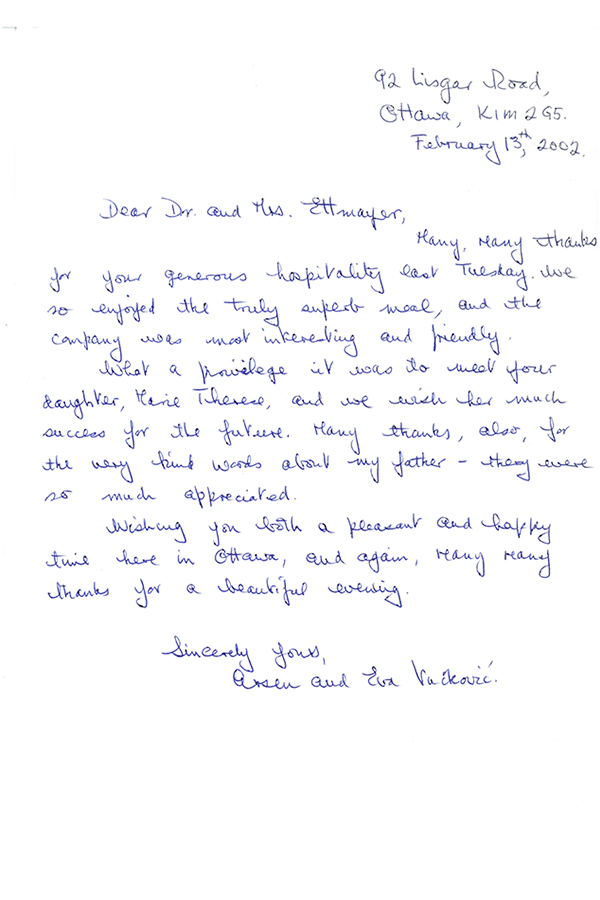 92 Lisgar Road,
Ottawa, K1M 2G5.
February 13th, 2002.
Dear Dr. and Mrs. Ettmayer,
Many, Many thanks
for your generous hospitality last Tuesday. We
so enjoyed the truly superb meal, and the
company was most interesting and friendly.
What a privilege it was to meet your
daughter, Marie Therese, and we wish her much
success for the future. Many thanks, also, for
the very kind words about my father – they were
so much appreciated.
Wishing you both a pleasant and happy
time here in Ottawa, and again, Many Many
thanks for a beautiful evening.
Sincerely Yours,
Arsen and Eva Vučković.